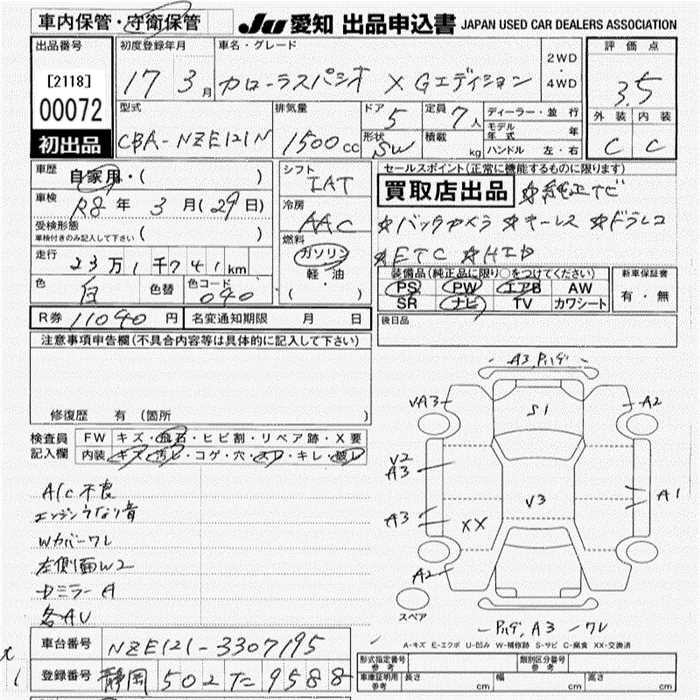 車内保管・守衛保管
Ju 愛知 出品申込書 JAPAN USED CAR DEALERS ASSOCIATION
出品番号
[2118]
00072
初出品
初度登録年月
17 3月
車名・グレード
カローラスパシオ X Gエディション
2WD
・
4WD
評価点
3.5
外装 内装
C C
型式
CBA-NZE121N
排気量
1500cc
ドア
5
定員
7人
形状
SW
積載
kg
ディーラー・並行
モデル年式 年
ハンドル 左・右
車歴
自家用・( )
車検
R8年 3月(29日)
受検形態
車検付きのみ記入して下さい ( )
走行
23万1千741km
色
白
色替
色コード
040
シフト
IAT
冷房
AAC
燃料
ガソリン
軽・油
( ・ )
セールスポイント(正常に機能するものに限ります)
買取店出品 ☆純正ナビ
☆バックカメラ ☆キーレス ☆ドラレコ
☆ETC ☆HID
装備品(純正品に限り○をつけてください)
PS PW エアB AW
SR ナビ TV カワシート
新車保証書
有・無
後日品
R券 11040円
名変通知期限 月 日
注意事項申告欄(不具合内容等は具体的に記入して下さい)
修復歴 有(箇所 )
検査員記入欄
FW キズ・飛石・ヒビ割・リペア跡・X要
内装 キズ・汚レ・コゲ・穴・スレ・キレ・破レ
A/C不良
エンジンうなり音
Wカバーワレ
左側面W2
Dミラー A
各AU
A3, ハガレ
VA3
S1
A2
V2
A3
V3
A1
A3
XX
A2
スペア
ハガレ, A3 ワレ
A-キズ E-エクボ U-凹み W-補修跡 S-サビ C-腐食 XX-交換済
車台番号 NZE121-3307195
登録番号 静岡 502 た 9588
形式指定番号 参考
類別区分番号 参考
車庫証明用 参考
長さ cm
幅 cm
高さ cm